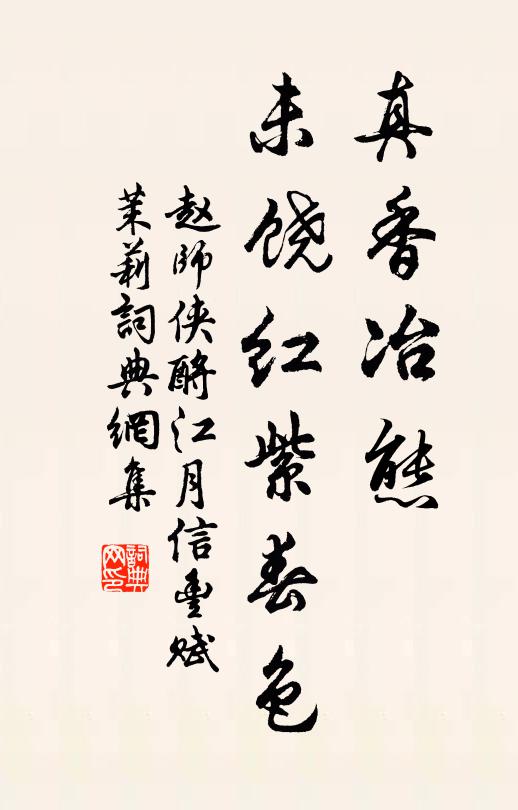 真香冶態
未饶红紫春色
赵师侠酹江月信豐赋
茉莉詞典網集
詞典网印